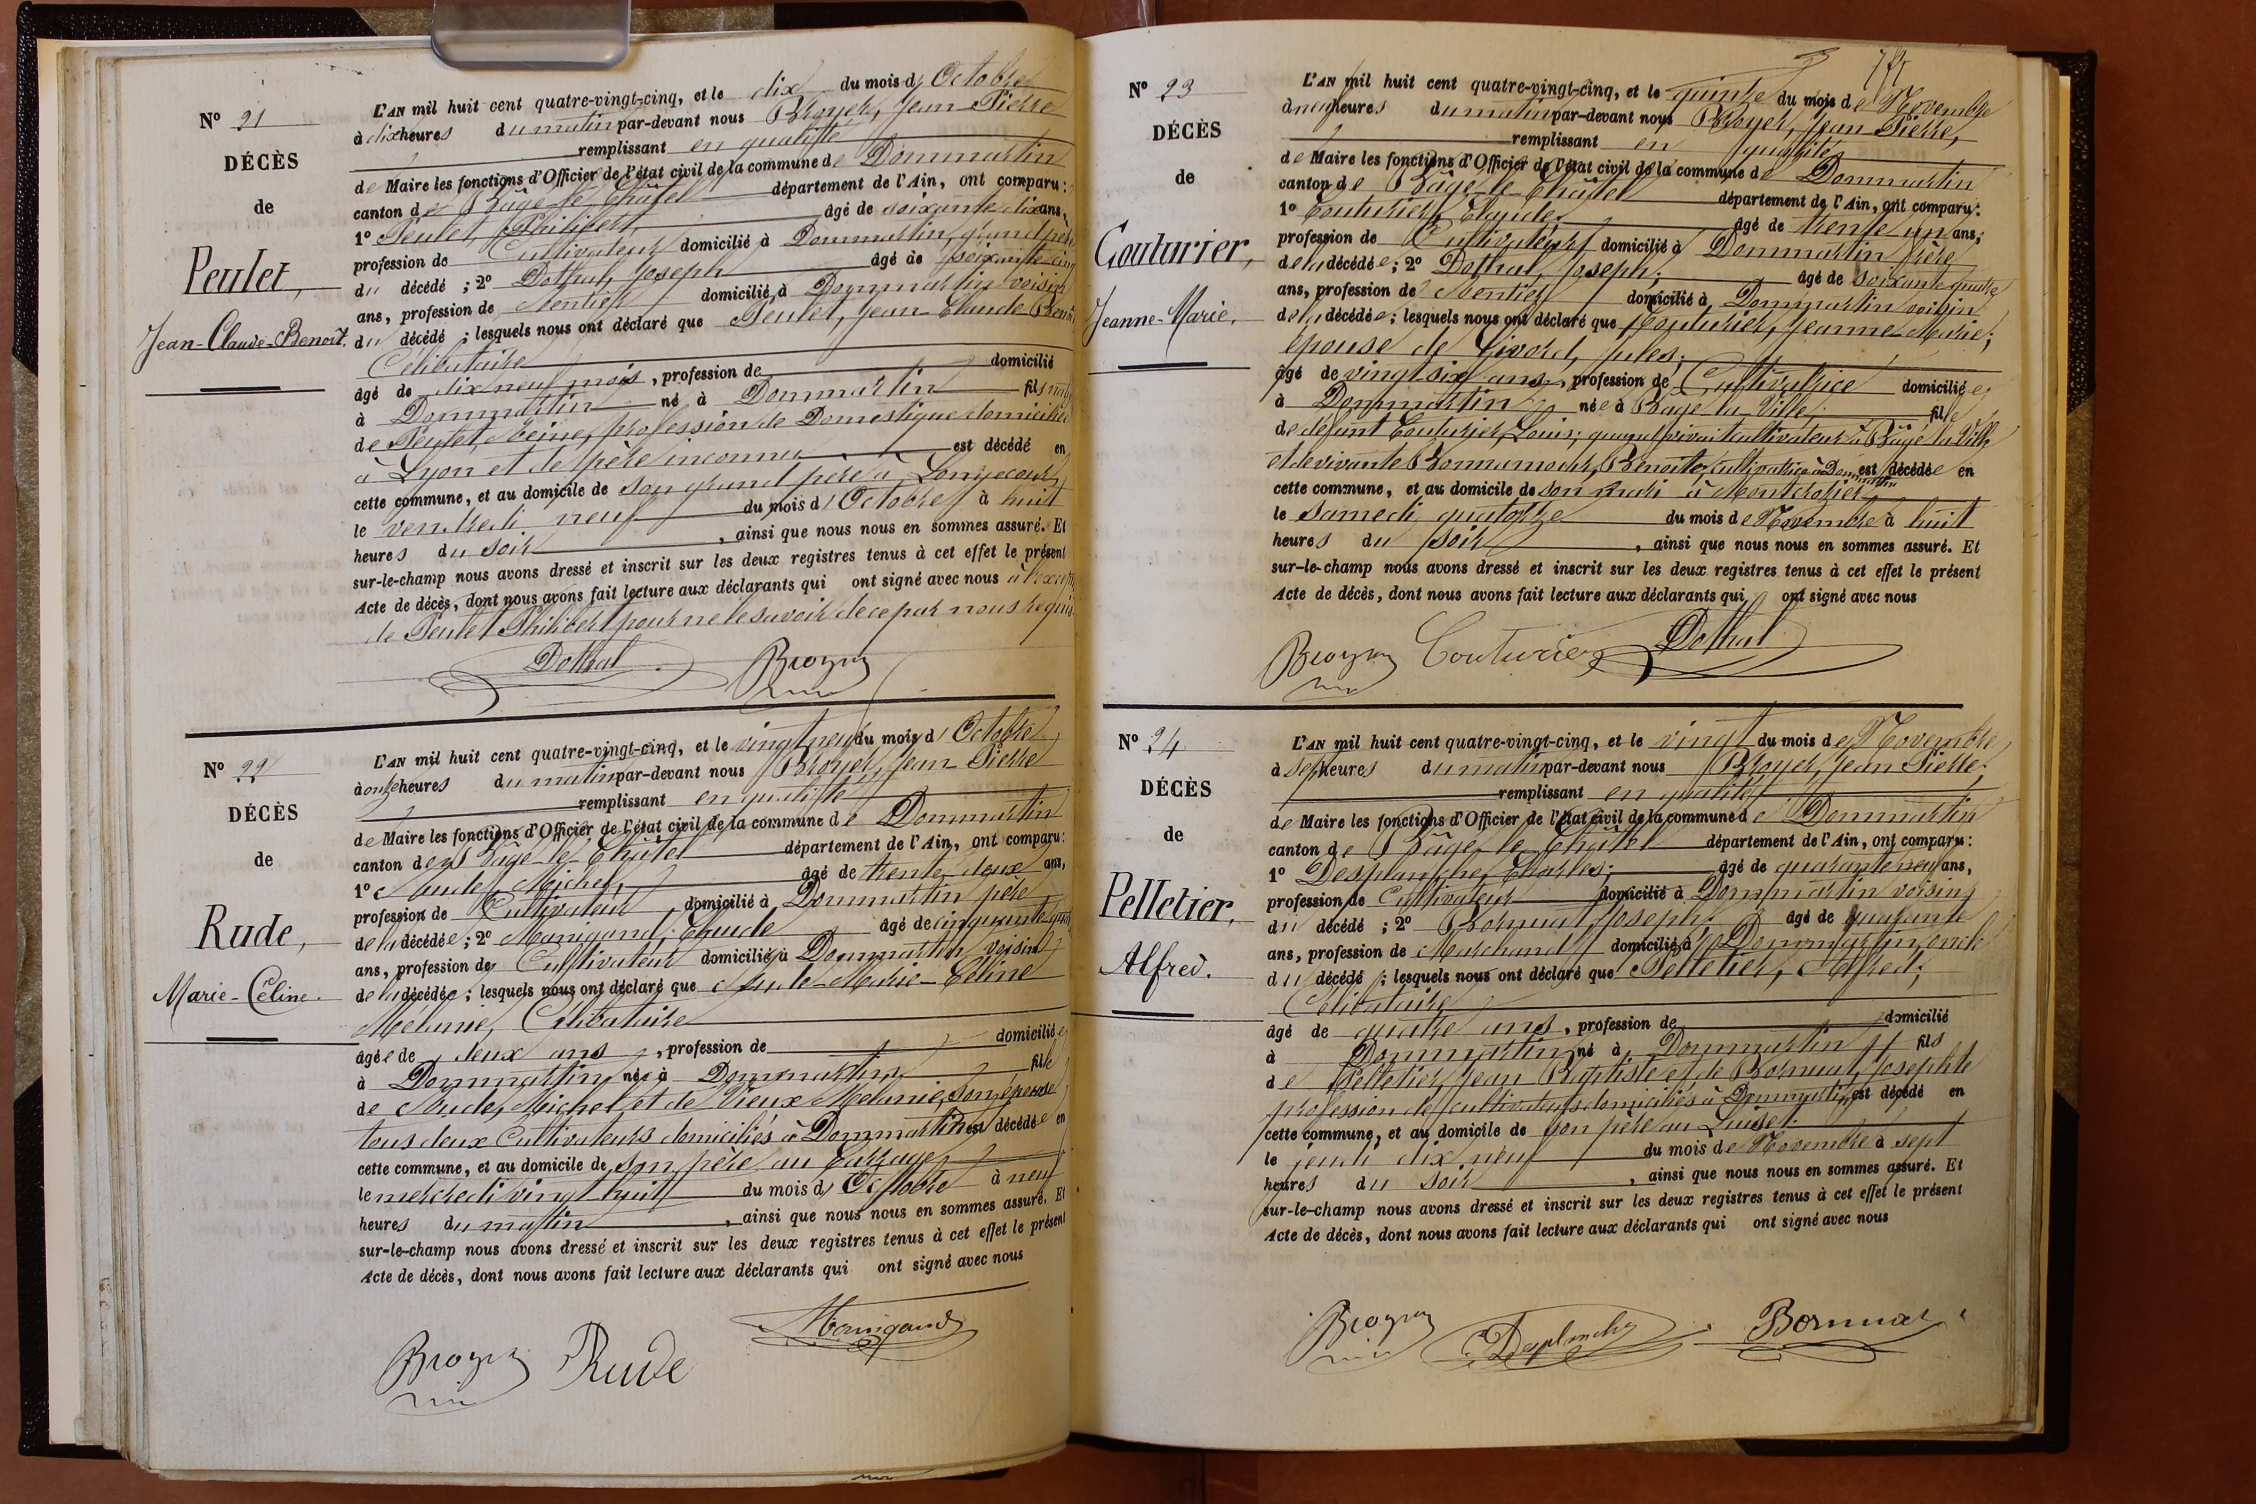 N° 21
DÉCÈS
de
Peulet,
Jean-Claude-Benoit.
L'AN mil huit cent quatre-vingt-cinq, et le dix du mois d'Octobre
à dix heures du matin par-devant nous Broyer, Jean Pierre
remplissant en qualité
de Maire les fonctions d'Officier de l'état civil de la commune de Dommartin
canton de Bâgé-le-Châtel département de l'Ain, ont comparu:
1° Peulet, Philibert, âgé de soixante dix ans,
profession de Cultivateur domicilié à Dommartin, grand père
du décédé; 2° Dothal, Joseph âgé de soixante cinq
ans, profession de Rentier domicilié à Dommartin voisin
du décédé; lesquels nous ont déclaré que Peulet, Jean Claude Benoit
Célibataire
âgé de dix neuf mois, profession de domicilié
à Dommartin né à Dommartin fils
de Peulet, Reine, profession de Domestique domiciliée
à Lyon et de père inconnu est décédé en
cette commune, et au domicile de son grand père à Longecour
le vendredi neuf du mois d'Octobre à huit
heures du soir, ainsi que nous nous en sommes assuré. Et
sur-le-champ nous avons dressé et inscrit sur les deux registres tenus à cet effet le présent
Acte de décès, dont nous avons fait lecture aux déclarants qui ont signé avec nous à l'exception
de Peulet Philibert pour ne le savoir de ce par nous requis
Dothal Broyer
N° 22
DÉCÈS
de
Rude,
Marie-Céline.
L'AN mil huit cent quatre-vingt-cinq, et le vingt neuf du mois d'Octobre
à onze heures du matin par-devant nous Broyer, Jean Pierre
remplissant en qualité
de Maire les fonctions d'Officier de l'état civil de la commune de Dommartin
canton de Bâgé-le-Châtel département de l'Ain, ont comparu:
1° Rude, Michel, âgé de trente deux ans,
profession de Cultivateur domicilié à Dommartin père
de la décédée; 2° Manigand, Claude âgé de cinquante
ans, profession de Cultivateur domicilié à Dommartin voisin
de la décédée; lesquels nous ont déclaré que Rude Marie-Céline
Mélanie, Célibataire
âgée de deux ans, profession de domiciliée
à Dommartin née à Dommartin fille
de Rude, Michel et de Vieux Mélanie, son épouse
tous deux Cultivateurs domiciliés à Dommartin est décédée en
cette commune, et au domicile de son père au
le mercredi vingt huit du mois d'Octobre à neuf
heures du matin, ainsi que nous nous en sommes assuré. Et
sur-le-champ nous avons dressé et inscrit sur les deux registres tenus à cet effet le présent
Acte de décès, dont nous avons fait lecture aux déclarants qui ont signé avec nous
Broyer Rude Manigand
N° 23
DÉCÈS
de
Couturier,
Jeanne-Marie.
L'AN mil huit cent quatre-vingt-cinq, et le quinze du mois de Novembre
à neuf heures du matin par-devant nous Broyer, Jean Pierre,
remplissant en qualité
de Maire les fonctions d'Officier de l'état civil de la commune de Dommartin
canton de Bâgé-le-Châtel département de l'Ain, ont comparu:
1° Couturier, Claude, âgé de trente un ans,
profession de Cultivateur domicilié à Dommartin frère
de la décédée; 2° Dothal, Joseph; âgé de soixante quatre
ans, profession de Rentier domicilié à Dommartin voisin
de la décédée; lesquels nous ont déclaré que Couturier, Jeanne-Marie;
épouse de Givord, Jules;
âgé de vingt six ans, profession de Cultivatrice domiciliée
à Dommartin née à Bâgé la Ville; fille
de défunt Couturier, Louis; quand vivait cultivateur à Bâgé la Ville
et de vivante Bonnamour, Benoite, cultivatrice à Dommartin est décédée en
cette commune, et au domicile de son mari à Montcrozier
le samedi quatorze du mois de Novembre à huit
heures du soir, ainsi que nous nous en sommes assuré. Et
sur-le-champ nous avons dressé et inscrit sur les deux registres tenus à cet effet le présent
Acte de décès, dont nous avons fait lecture aux déclarants qui ont signé avec nous
Broyer Couturier Dothal
N° 24
DÉCÈS
de
Pelletier,
Alfred.
L'AN mil huit cent quatre-vingt-cinq, et le vingt du mois de Novembre
à sept heures du matin par-devant nous Broyer, Jean Pierre;
remplissant en qualité
de Maire les fonctions d'Officier de l'état civil de la commune de Dommartin
canton de Bâgé-le-Châtel département de l'Ain, ont comparu:
1° Desplanche, Charles; âgé de quarante neuf ans,
profession de Cultivateur domicilié à Dommartin voisin
du décédé; 2° Bornuat, Joseph; âgé de quarante
ans, profession de Marchand domicilié à Dommartin oncle
du décédé; lesquels nous ont déclaré que Pelletier, Alfred;
Célibataire
âgé de quatre ans, profession de domicilié
à Dommartin né à Dommartin fils
de Pelletier, Jean Baptiste et de Bornuat, Josephte
profession de cultivateurs domiciliés à Dommartin est décédé en
cette commune, et au domicile de son père au
le jeudi dix neuf du mois de Novembre à sept
heures du soir, ainsi que nous nous en sommes assuré. Et
sur-le-champ nous avons dressé et inscrit sur les deux registres tenus à cet effet le présent
Acte de décès, dont nous avons fait lecture aux déclarants qui ont signé avec nous
Broyer Desplanche Bornuat